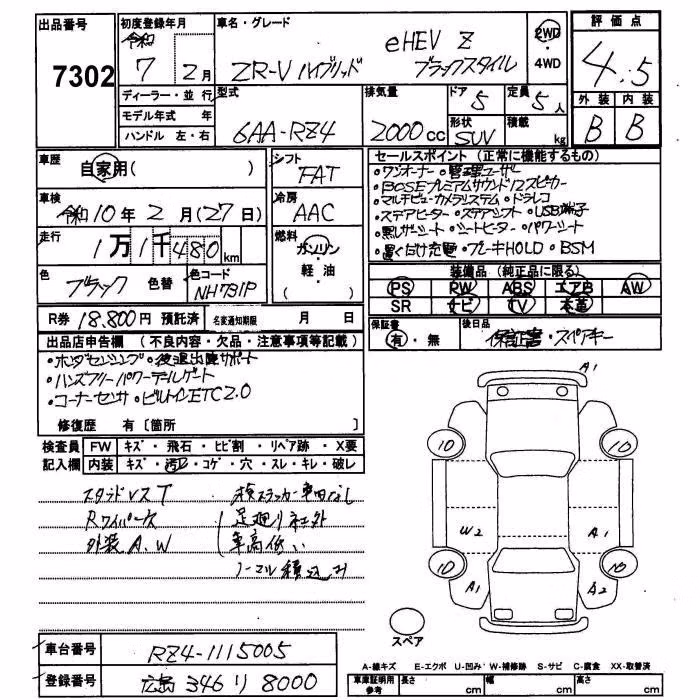 出品番号
7302
初度登録年月
令和
7 2月
ディーラー・並行
モデル年式 年
ハンドル 左・右
車名・グレード
eHEV Z
ZR-V ハイブリッド ブラックスタイル
2WD
・4WD
型式
6AA-RZ4
排気量
2000cc
ドア 5
定員 5人
形状 SUV
積載 kg
評価点
4.5
外装 内装
B B
車歴
自家用( )
車検
令和10年2月(27日)
走行
1万1千480km
色
ブラック
色替
色コード
NH731P
シフト
FAT
冷房
AAC
燃料
ガソリン
軽・油
( )
R券 18,800円 預託済
名変通知期限 月 日
セールスポイント (正常に機能するもの)
・ワンオーナー ・管理ユーザー
・BOSEプレミアムサウンド12スピーカー
・マルチビューカメラシステム ・ドラレコ
・ステアヒーター ・ステアシフト ・USB端子
・黒レザーシート ・シートヒーター ・パワーシート
・置くだけ充電 ・ブレーキHOLD ・BSM
装備品 (純正品に限る)
PS RW ABS エアB AW
SR ナビ TV 本革
保証書
有・無
後日品
保証書・スペアキー
出品店申告欄 (不良内容・欠品・注意事項等記載)
・ホンダセンシング ・後退出庫サポート
・ハンズフリーパワーテールゲート
・コーナーセンサ ・ビルトインETC2.0
修復歴 有〔箇所 〕
検査員 FW キズ・飛石・ヒビ割・リペア跡・X要
記入欄 内装 キズ・汚レ・コゲ・穴・スレ・キレ・破レ
スタッドレスT 検ステッカー車内なし
Rワイパーレス 足廻り社外
外装A.W 車高低い
ノーマル積込み
A1
10 10
W2 A1
10 10
A1 A2
スペア
車台番号 RZ4-1115005
登録番号 広島 346 リ 8000
A-線キズ E-エクボ U-凹み W-補修跡 S-サビ C-腐食 XX-取替済
車庫証明用参考 長さ cm 幅 cm 高さ cm